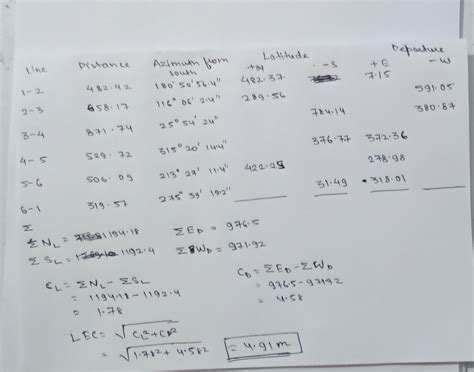 Line Distance Azimuth from south Latitude Departure
+N -S +E -W
1-2 482.42 180° 50' 56.4" 482.37 7.15
2-3 658.17 116° 06' 24" 289.56 591.05
3-4 871.74 25° 54' 24" 784.14 380.87
4-5 529.72 315° 20' 144" 376.77 372.36
5-6 506.09 213° 27' 11.4" 422.25 278.98
6-1 319.57 275° 39' 19.2" 31.49 318.01
Σ
ΣN_L = 1194.18 ΣE_D = 976.5
ΣS_L = 1192.4 ΣW_D = 971.92
C_L = ΣN_L - ΣS_L C_D = ΣE_D - ΣW_D
= 1194.18 - 1192.4 = 9765-97192
= 1.78 = 4.58
LEC = √C_L² + C_D²
= √1.78² + 4.582 = 4.91m